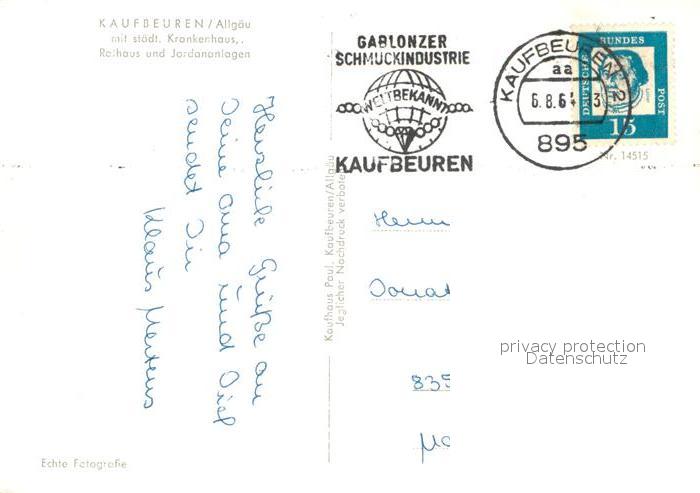 KAUFBEUREN/Allgäu
mit städt. Krankenhaus,.
Rathaus und Jordananlagen
GABLONZER
SCHMUCKINDUSTRIE
WELTBEKANNT
KAUFBEUREN
KAUFBEUREN 2
aa
6.8.64
895
DEUTSCHE BUNDES POST
15
Nr. 14515
Herzliche Grüße an
Deine Oma und Dich
sendet Dir
Klaus Mertens
Kaufhaus Paul, Kaufbeuren/Allgäu
Jeglicher Nachdruck verboten
Herrn
Donat
835
privacy protection
Datenschutz
Echte Fotografie